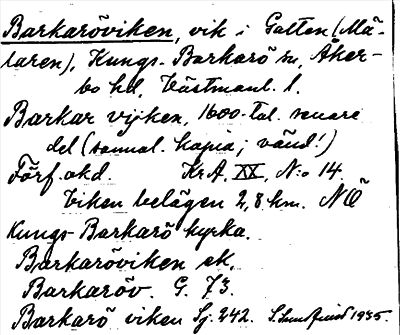 Barkaröviken, vik i Galten (Mä-
laren), Kungs-Barkarö sn, Åker-
bo hd, Västmanl. l.
Barkar vijken, 1600-tal. senare
del (samal. kopia; vänd!)
Förf. okd. KrA. XX, N:o 14.
Viken belägen 2,8 km. NÖ
Kungs-Barkarö kyrka.
Barkaröviken ek.
Barkaröv. G. 73.
Barkarö viken Lj. 242. 1935.